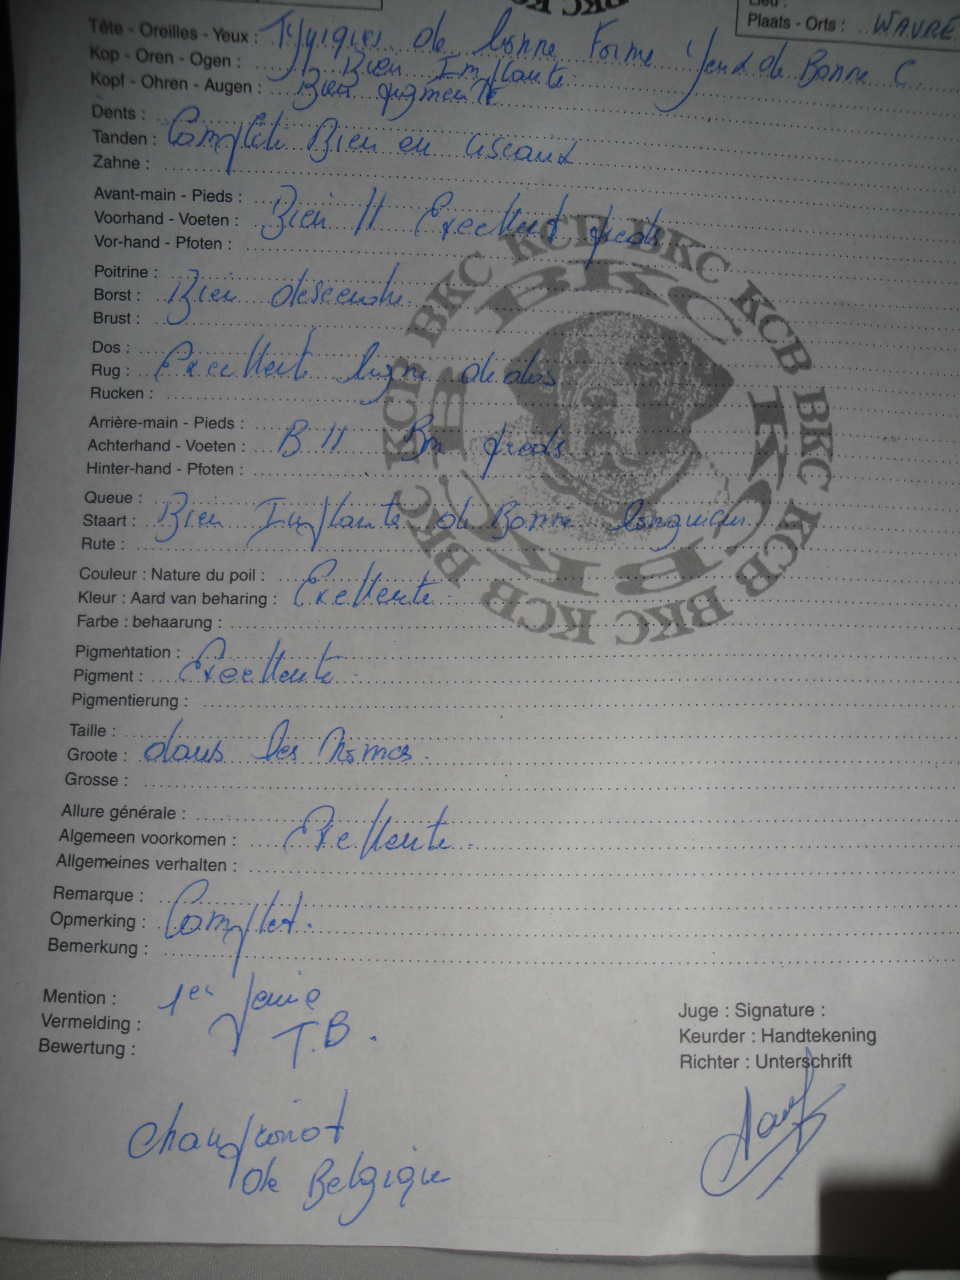 Lieu :
Plaats - Orts : WAVRE
Tête - Oreilles - Yeux : Typiques de bonne forme Yeux de Bonne C
Kop - Oren - Ogen : Bien Implante
Kopf - Ohren - Augen : Bien pigmente
Dents :
Tanden : Complete Bien en ciseaux
Zahne :
Avant-main - Pieds :
Voorhand - Voeten : Bien // Excellent pieds
Vor-hand - Pfoten :
Poitrine :
Borst : Bien descendu
Brust :
Dos :
Rug : Excellente ligne de dos
Rucken :
Arrière-main - Pieds :
Achterhand - Voeten : B // Bon pieds
Hinter-hand - Pfoten :
Queue :
Staart : Bien Implante de Bonne longueur
Rute :
Couleur : Nature du poil :
Kleur : Aard van beharing : Exellente
Farbe : behaarung :
Pigmentation :
Pigment : Excellente
Pigmentierung :
Taille :
Groote : dans les Normes.
Grosse :
Allure générale :
Algemeen voorkomen : Exellente.
Allgemeines verhalten :
Remarque :
Opmerking : Complet.
Bemerkung :
Mention : 1er
Vermelding : T.B.
Bewertung :
Juge : Signature :
Keurder : Handtekening
Richter : Unterschrift
Championot
de Belgique
BKC KCB BKC KCB BKC KCB BKC KCB
BKC BKC